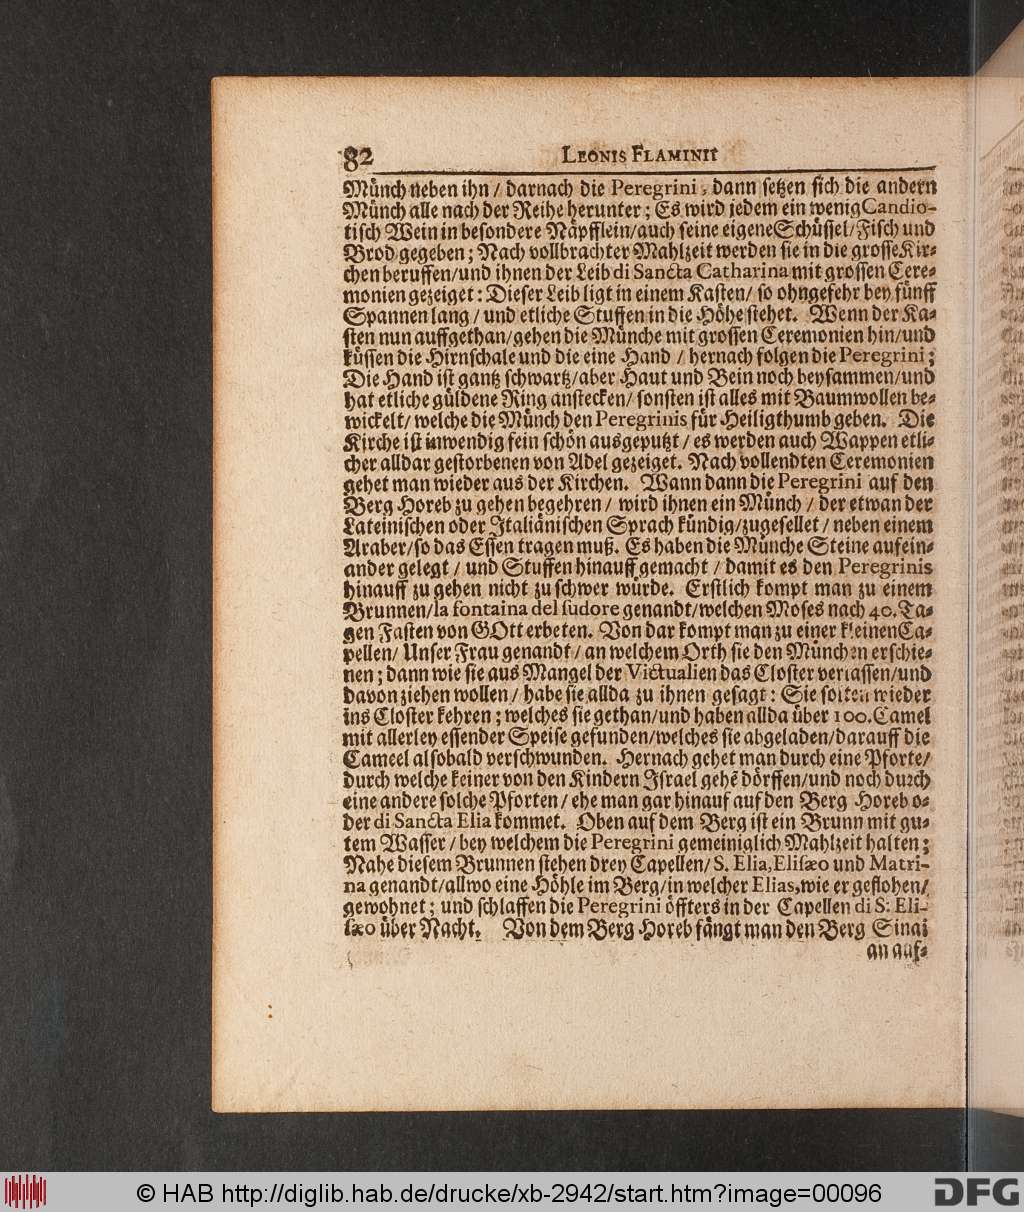 82 LEONIS FLAMINII
Münch neben ihn / darnach die Peregrini, dann setzen sich die andern
Münch alle nach der Reihe herunter; Es wird jedem ein wenig Candio-
tisch Wein in besondere Näpfflein/auch seine eigene Schüssel/Fisch und
Brod gegeben; Nach vollbrachter Mahlzeit werden sie in die grosse Kir-
chen beruffen/und ihnen der Leib di Sancta Catharina mit grossen Cere-
monien gezeiget: Dieser Leib ligt in einem Kasten/ so ohngefehr bey fünff
Spannen lang / und etliche Stuffen in die Höhe stehet. Wenn der Ka-
sten nun auffgethan/gehen die Münche mit grossen Ceremonien hin/und
küssen die Hirnschale und die eine Hand / hernach folgen die Peregrini;
Die Hand ist gantz schwartz/aber Haut und Bein noch beysammen/und
hat etliche güldene Ring anstecken/ sonsten ist alles mit Baumwollen be-
wickelt/ welche die Münch den Peregrinis für Heiligthumb geben. Die
Kirche ist inwendig fein schön ausgeputzt / es werden auch Wappen etli-
cher alldar gestorbenen von Adel gezeiget. Nach vollendten Ceremonien
gehet man wieder aus der Kirchen. Wann dann die Peregrini auf den
Berg Horeb zu gehen begehren / wird ihnen ein Münch / der etwan der
Lateinischen oder Italiänischen Sprach kündig/zugesellet / neben einem
Araber/so das Essen tragen muß. Es haben die Münche Steine aufein-
ander gelegt / und Stuffen hinauff gemacht / damit es den Peregrinis
hinauff zu gehen nicht zu schwer würde. Erstlich kompt man zu einem
Brunnen/la fontaina del sudore genandt/welchen Moses nach 40. Ta-
gen Fasten von GOtt erbeten. Von dar kompt man zu einer kleinen Ca-
pellen/ Unser Frau genandt / an welchem Orth sie den München erschie-
nen; dann wie sie aus Mangel der Victualien das Closter verlassen/und
davon ziehen wollen / habe sie allda zu ihnen gesagt: Sie solten wieder
ins Closter kehren; welches sie gethan/und haben allda über 100. Camel
mit allerley essender Speise gefunden/welches sie abgeladen/darauff die
Cameel alsobald verschwunden. Hernach gehet man durch eine Pforte/
durch welche keiner von den Kindern Israel gehẽ dörffen/und noch durch
eine andere solche Pforten / ehe man gar hinauf auf den Berg Horeb o-
der di Sancta Elia kommet. Oben auf dem Berg ist ein Brunn mit gu-
tem Wasser / bey welchem die Peregrini gemeiniglich Mahlzeit halten;
Nahe diesem Brunnen stehen drey Capellen/ S. Elia, Elisæo und Matri-
na genandt/allwo eine Höhle im Berg/in welcher Elias, wie er geflohen/
gewohnet; und schlaffen die Peregrini öffters in der Capellen di S. Eli-
sæo über Nacht. Von dem Berg Horeb fängt man den Berg Sinai
an auf-
© HAB http://diglib.hab.de/drucke/xb-2942/start.htm?image=00096
DFG